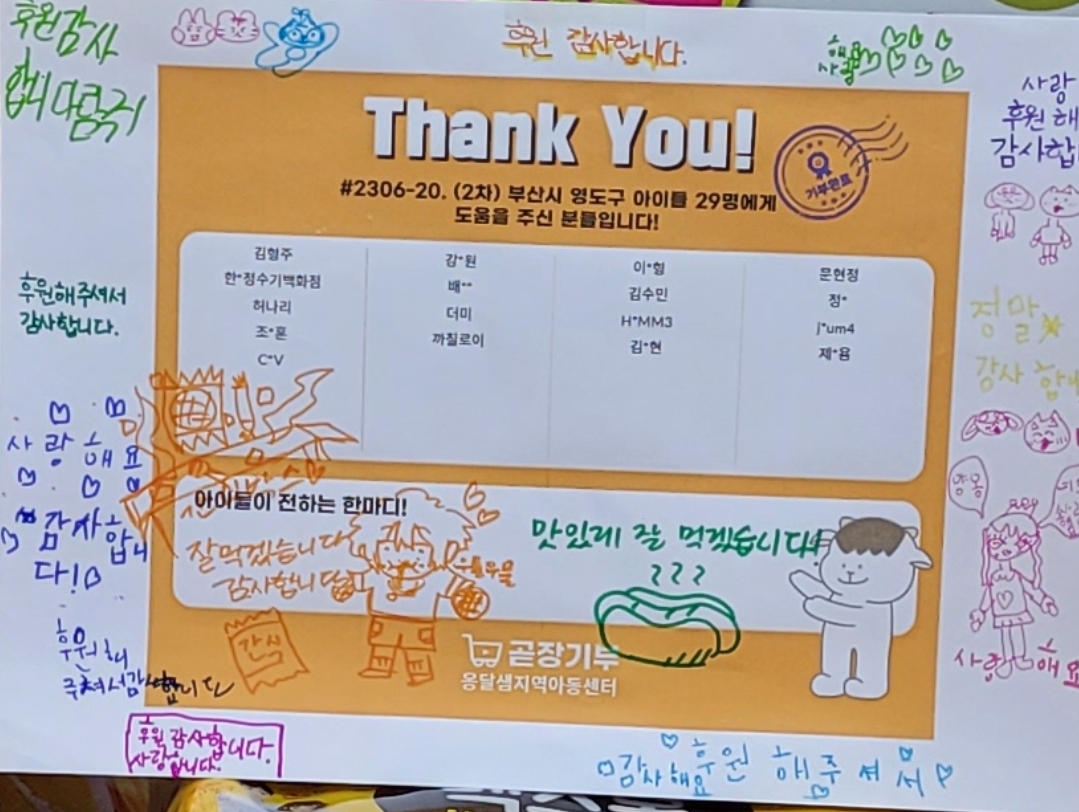 후원감사
합니다
후원 감사합니다.
사랑
후원해
감사합
Thank You!
기부완료
#2306-20. (2차) 부산시 영도구 아이들 29명에게
도움을 주신 분들입니다!
김형주
한*정수기백화점
허나리
조*훈
C*V
강*원
배**
더미
까칠로이
이*형
김수민
H*MM3
김*현
문현정
정*
j*um4
제*용
후원해주셔서
감사합니다.
정말
감사 합니
사랑해요
감사합니
다!
아이들이 전하는 한마디!
잘먹겠습니다
감사합니다
우물우물
맛있레 잘 먹겠습니다
간식
곧장기부
옹달샘지역아동센터
야옹
사랑해요
후원해
주셔서감사합니다
후원감사합니다.
사랑합니다.
감사해요 후원 해주셔서